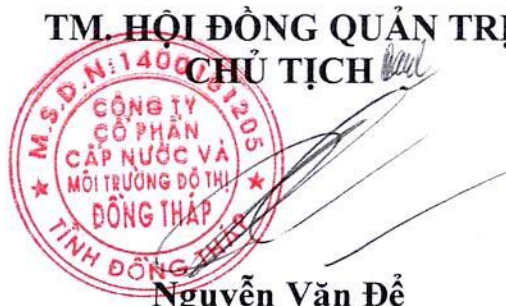 TM. HỘI ĐỒNG QUẢN TRỊ
CHỦ TỊCH
M.S.D.N: 1400101205
CÔNG TY
CỔ PHẦN
CẤP NƯỚC VÀ
MÔI TRƯỜNG ĐÔ THỊ
ĐỒNG THÁP
TỈNH ĐỒNG THÁP
Nguyễn Văn Để